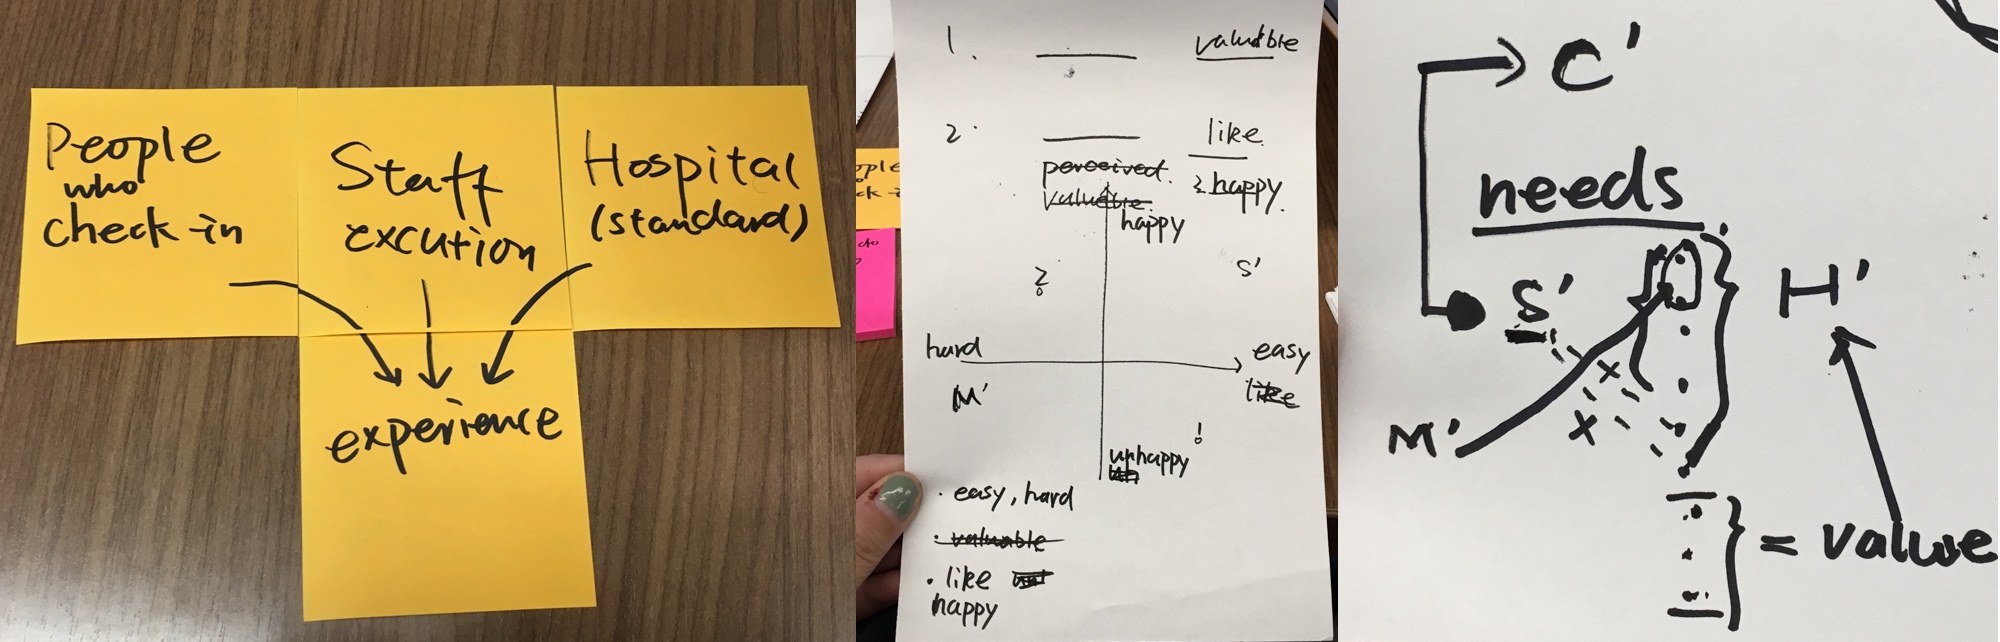 People
who
check-in
Staff
excution
Hospital
(standard)
experience
1.
valuable
2.
like
perceived.
valuable.
? happy.
happy
?
S'
hard
easy
M'
like
!
unhappy
un
• easy, hard
• valuable
• like
happy
ople
ck-i
do
C'
needs
S'
H'
M'
x
x
= value